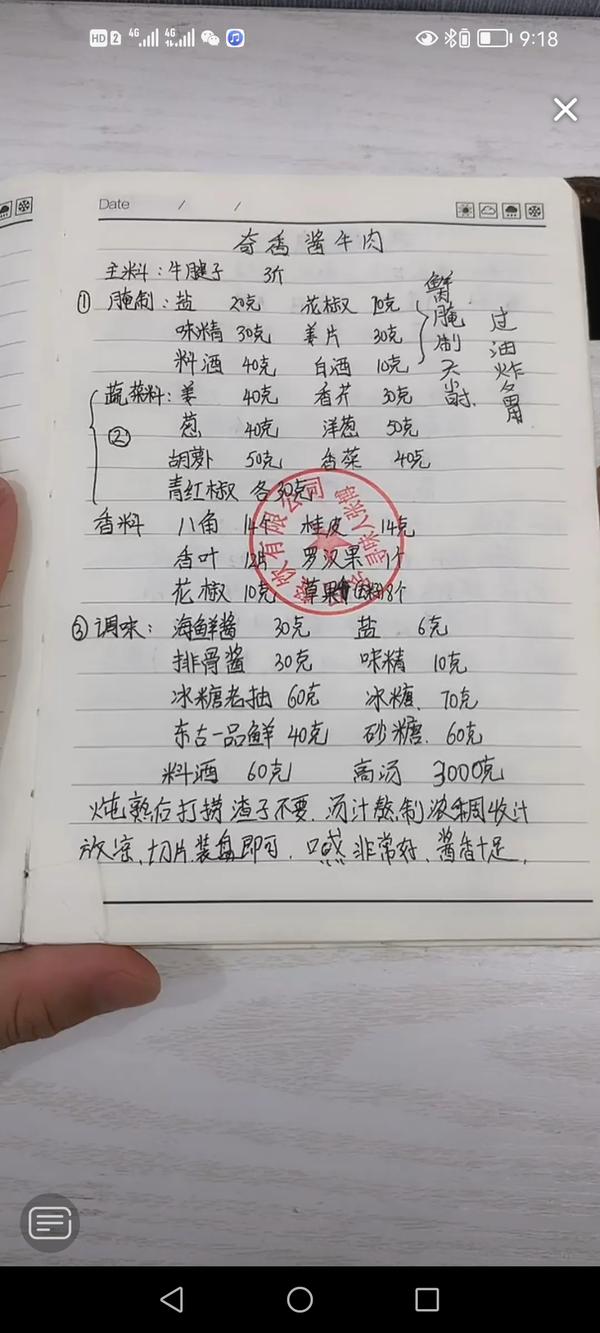 HD 2 4G 4G 9:18
Date / /
奇香酱牛肉
主料：牛腱子 3斤
① 腌制：盐 20克 花椒 10克
味精 30克 姜片 30克
料酒 40克 白酒 10克
腌制
过油炸备用
蔬菜料：姜 40克 香芹 30克
② 葱 40克 洋葱 50克
胡萝卜 50克 香菜 40克
青红椒 各30克
香料 八角 14克 桂皮 14克
香叶 12片 罗汉果 1个
花椒 10克 草果 8个
有限公司
③调味：海鲜酱 30克 盐 6克
排骨酱 30克 味精 10克
冰糖老抽 60克 冰糖、70克
东古一品鲜 40克 砂糖、60克
料酒 60克 高汤 3000克
炖熟后打捞渣子不要、汤汁熬制浓稠收汁
放凉、切片、装盘即可、口感非常好、酱香十足，